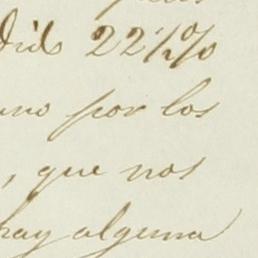 22½%
uno por los
, que nos
hay alguna